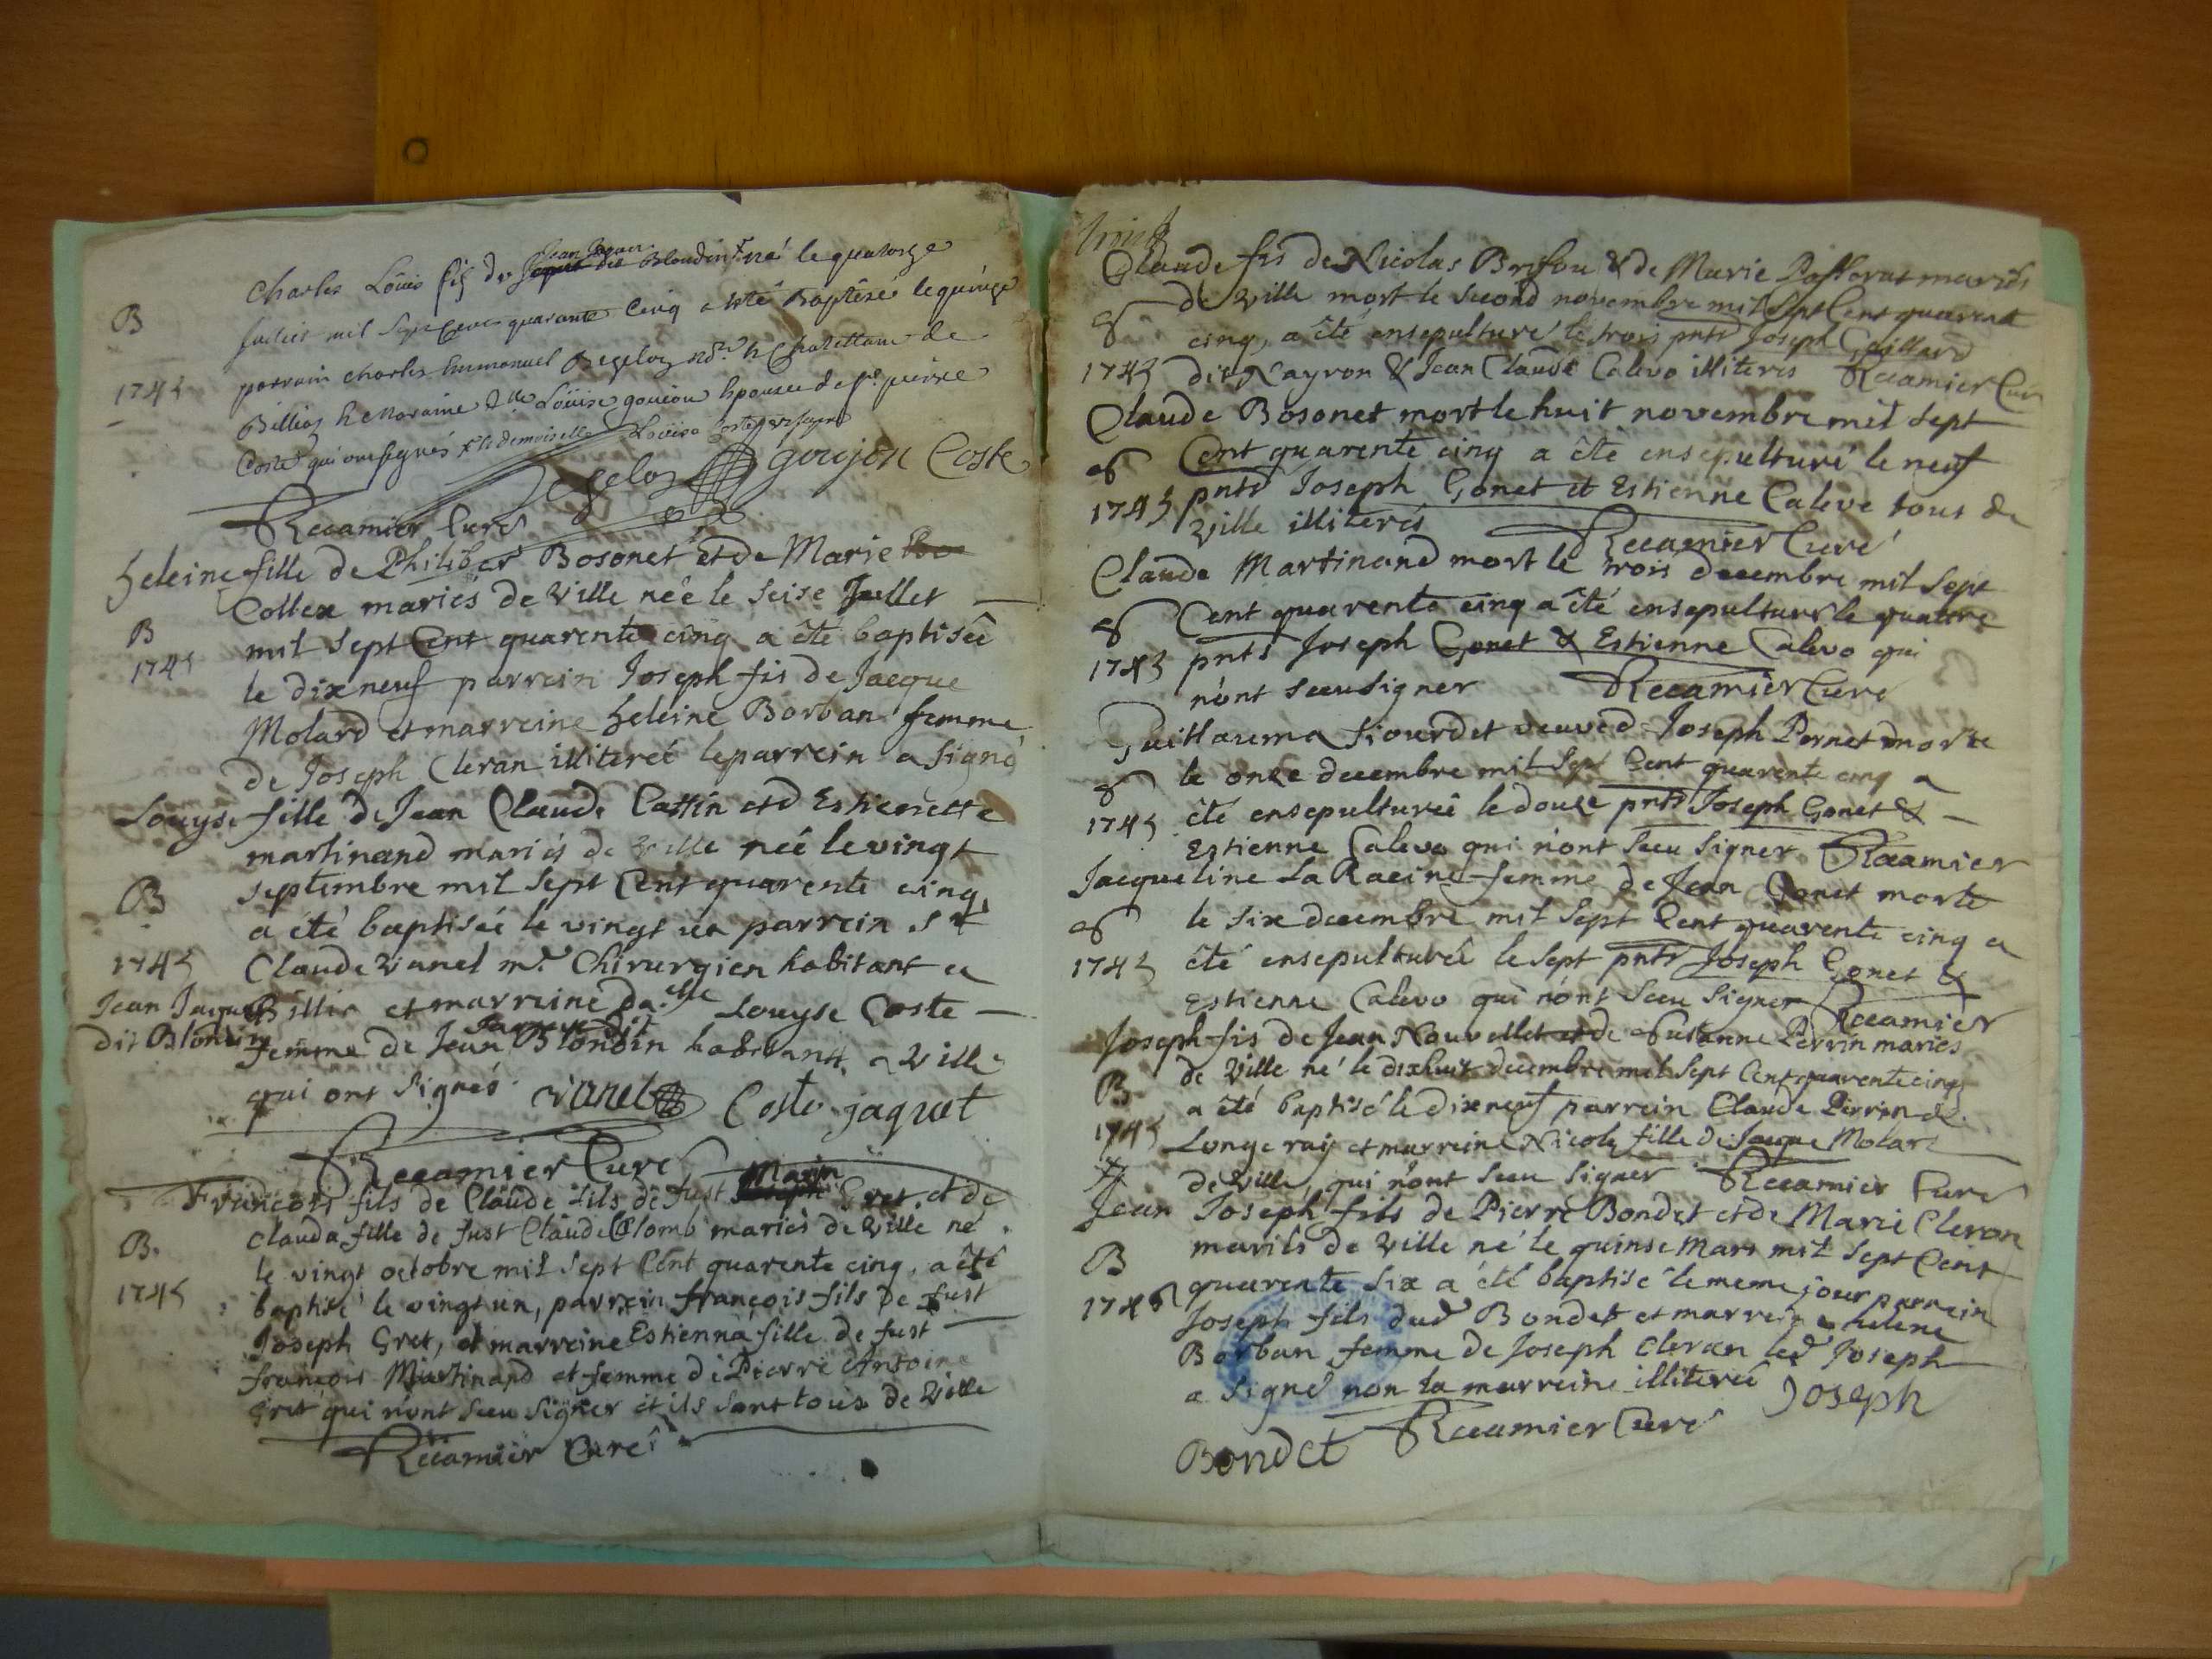 Charles Loüis fiz de Jean Jaques Blondin né le quatorze
B
Juliet mil Sept Cent quarante Cinq a esté Baptisé le quinze
parrain Charles Emmanuel Begeloz
1745
Billiaz & Maraine Louise goujon Epousee de Sr pierre
Coste qui ont signés
goujon Coste
Recamier Curé
heleine fille de Philiber Bosonet et de Marie
Collex mariés de Ville neé le seise Juillet
B
mil sept Cent quarente cinq a êté baptiseê
1745
le dixneuf parrein Joseph fis de Jacque
Molard et marreine heleine Borban femme
de Joseph Cleran illiteret le parrein a signé
Louyse fille de Jean Claude Cattin et d Estienette
martinand mariés de Ville neê le vingt
septembre mil sept Cent quarente cinq
B
a été baptiseé le vingt un parrein Sr
1745
Claude Vanel mr. Chirurgien habitant a
Jean Jaques
Billia et marreine da.elle Louyse Coste
dit Blondin
Jacque dit
femme de Jean Blondin habitants a Ville
qui ont signés vanel Coste jaquet
Recamier Curé
François fils de Claude fils de fust Marin Gret et de
Clauda fille de fust Claude Colomb mariés de Ville né
B.
le vingt octobre mil sept Cent quarente cinq, a êté
1745
baptisé le vingt un, parrein françois fils de fust
Joseph Gret, et marreine Estienna fille de fust
françois Martinand et femme de Pierre Antoine
Gret qui n'ont sceu signer et ils sont tous de Ville
Recamier Curé
Claude fis de Nicolas Brifou & de Marie Passerat mariés
de Ville mort le second novembre mil sept Cent quarente
cinq, a êté ensepulturé le trois pnts Joseph Gaillard
1745 dit Nayron & Jean Claude Calevo illiteres Recamier Curé
Claude Bosonet mort le huit novembre mil sept
Cent quarente cinq a êté ensepulturé le neuf
1745 pnts Joseph Gonet et Estienne Caleve tous de
Ville illiterés Recamier Curé
Claude Martinand mort le trois decembre mil sept
Cent quarente cinq a êté ensepulturé le quatre
1745 pnts Joseph Gonet & Estienne Calevo qui
n'ont sceu signer Recamier Curé
Guillauma Siourdet veuve d Joseph Pernet morte
le onze decembre mil sept Cent quarente cinq a
1745 êté ensepultureê le douze pnts Joseph Gonet &
Estienne Calevo qui n'ont sceu signer Recamier
Jacqueline La Racine femme de Jean Gonet morte
le six decembre mil sept Cent quarente cinq a
1745 êté ensepultureê le sept pnts Joseph Gonet &
Estienne Calevo qui n'ont sceu signer Recamier
Joseph fis de Jean Nouvellet et de Susanne Perrin mariés
de Ville né le dixhuit decembre mil sept Cent quarente cinq
B
a êté baptisé le dixneuf parrein Claude Perrin de
1745 Longeray et marreine Nicole fille de Jacque Molard
de Ville, qui n'ont sceu signer Recamier Curé
Jean Joseph fils de Pierre Bondet et de Marie Cleran
mariés de Ville né le quinse Mars mil sept Cent
B
quarente six a êté baptisé le meme jour parrein
1746
Joseph fils dud Bondet et marreine helene
Borban femme de Joseph Cleran led Joseph
a signé non la marreine illitereê Joseph
Bondet Recamier Curé